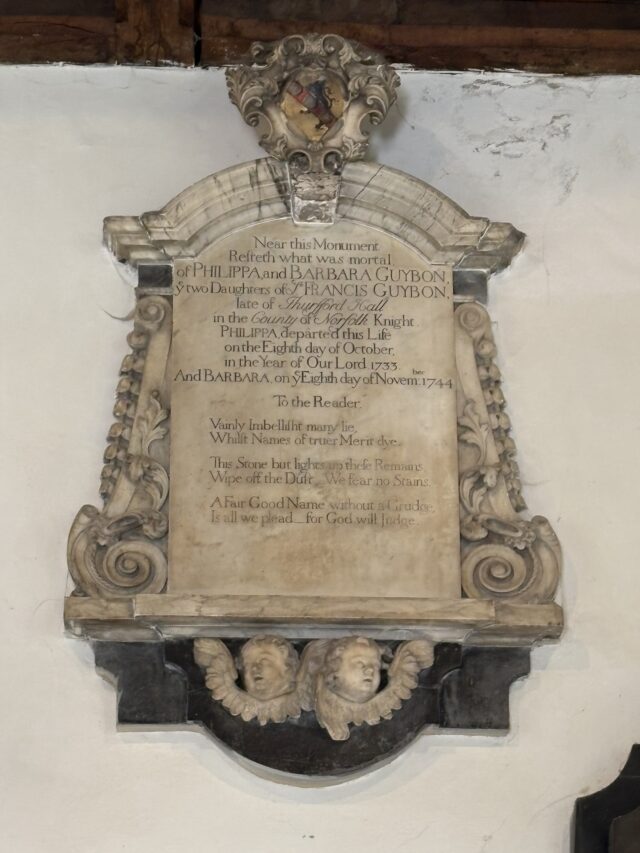 Near this Monument
Resteth what was mortal
of PHILIPPA, and BARBARA GUYBON,
yͤ two Daughters of Sʳ FRANCIS GUYBON,
late of Thursford Hall
in the County of Norfolk Knight.
PHILIPPA, departed this Life
on the Eighth day of October,
in the Year of Our Lord 1733.
And BARBARA, on yͤ Eighth day of Novemᵇᵉʳ 1744
To the Reader.
Vainly Imbellisht many lie,
Whilst Names of truer Merit dye.
This Stone but lights up these Remains
Wipe off the Dust We fear no Stains.
A Fair Good Name without a Grudge,
Is all we plead __ for God will Judge.